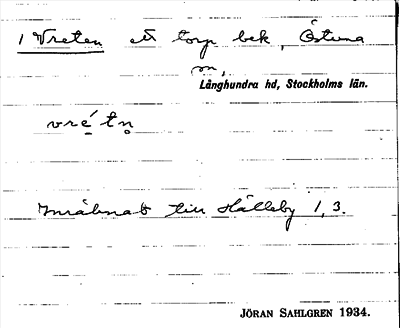 1 Vreten ett torp bek, Östuna
sn,
Långhundra hd, Stockholms län.
vré̱tn̥
Inräknat till Hälleby 1, 3.
JÖRAN SAHLGREN 1934.